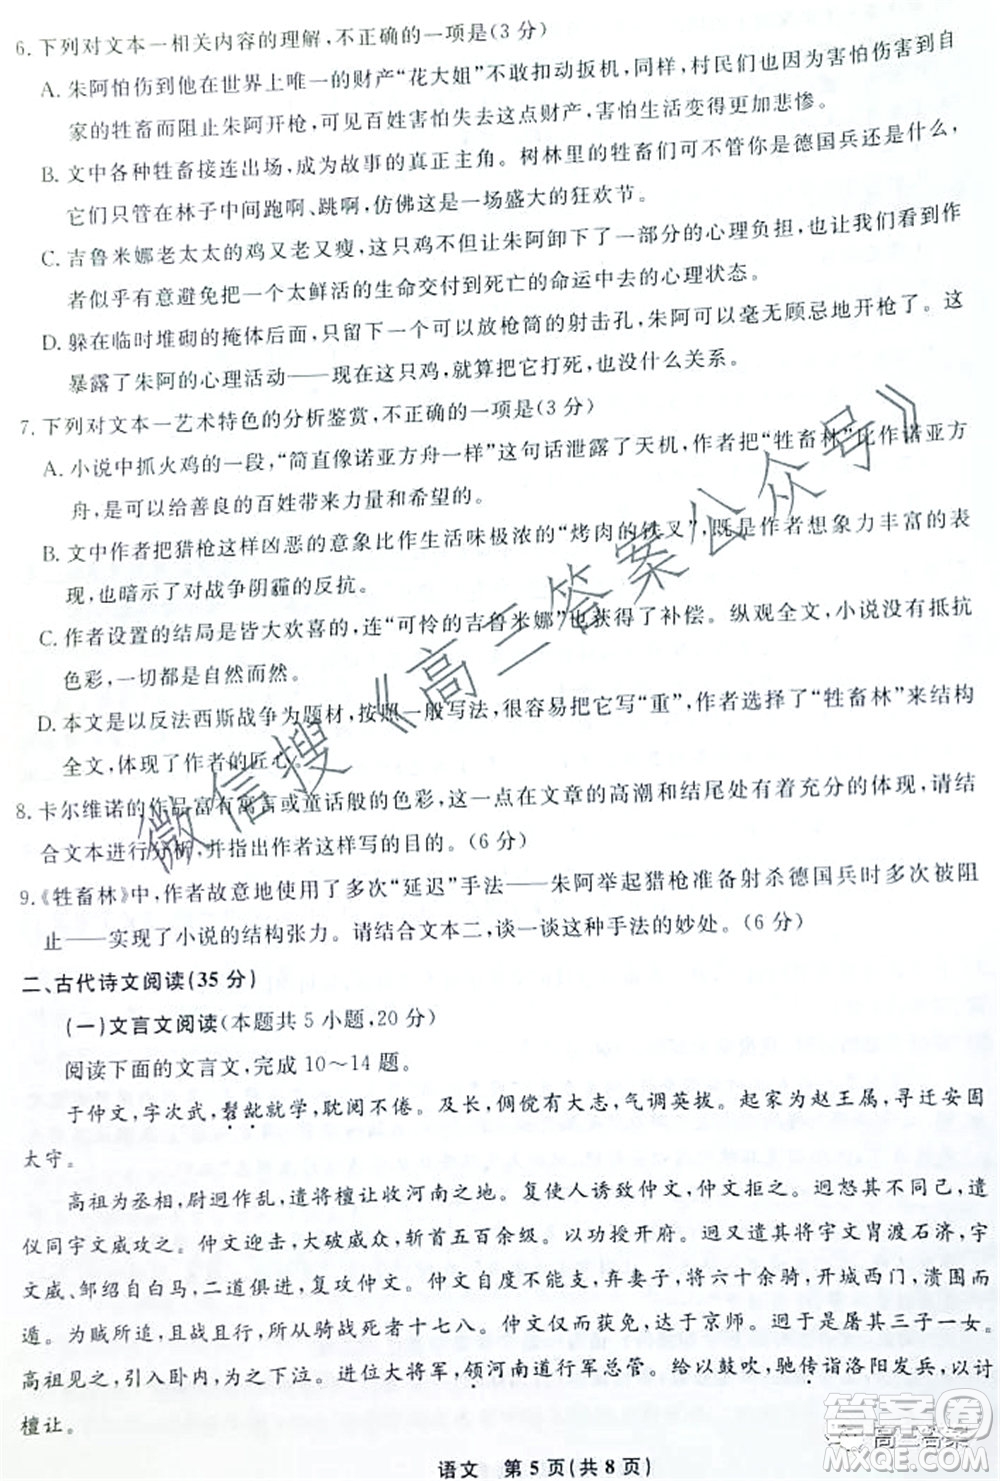 6. 下列对文本一相关内容的理解,不正确的一项是(3 分)
A. 朱阿怕伤到他在世界上唯一的财产“花大姐”不敢扣动扳机,同样,村民们也因害怕伤害到自
家的牲畜而阻止朱阿开枪,可见百姓害怕失去这点财产,害怕生活变得更加悲惨。
B. 文中各种牲畜接连出场,成为故事的真正主角。树林里的牲畜们可不管你是德国兵还是什么,
它们只管在林子中间跑啊、跳啊,仿佛这是一场盛大的狂欢节。
C. 吉鲁米娜老太太的鸡又老又瘦,这只鸡不但让朱阿卸下了一部分的心理负担,也能看出作
者似乎有意避免把一个太鲜活的生命交付到死亡的命运中去的心理状态。
D. 躲在临时堆砌的掩体后面,只留下一个可以放枪筒的射击孔,朱阿可以毫无顾忌地开枪。这
暴露了朱阿的心理活动——现在这只鸡,把它打死,出不了什么关系。
7. 下列对文本一艺术特色的分析鉴赏,不正确的一项是(3 分)
A. 小说中抓火鸡的一段,“简直像诺亚方舟一样”这句话泄露了天机,作者把“牲畜林”比作诺亚方
舟,是可以给善良的百姓带来力量和希望的。
B. 文中作者把猎枪这样凶恶的意象比作生活味极浓的“烤肉的铁叉”,既是作者想象力丰富的表
现,也暗示了对战争阴霾的反抗。
C. 作者设置的结局是皆大欢喜的,连“可怜的吉鲁米娜”也获得了补偿。纵观全文,小说没有抵抗
色彩,一切都是自然而然。
D. 本文是以反法西斯战争为题材,按照一般写法,很容易写“重”,作者选择了“牲畜林”来结构
全文,体现了作者的匠心。
8. 卡尔维诺的作品富有寓言或童话般的色彩,这一点在文章的高潮和结尾处有着充分的体现,请结
合文本进行分析,并指出作者这样写的目的。(6 分)
9. 《牲畜林》中,作者故意地使用了多次“延迟”手法——朱阿举起猎枪准备射杀德国兵时多次被阻
止——实现了小说的结构张力。请结合文本二,谈一谈这种手法的妙处。(6 分)
二、古代诗文阅读(35 分)
(一)文言文阅读(本题共 5 小题,20 分)
阅读下面的文言文,完成 10～14 题。
于仲文,字次武,髫龀就学,耽阅不倦。及长,倜傥有大志,气调英拔。起家为赵王属,寻迁安固
太守。
高祖为丞相,尉迥作乱,遣将檀让收河南之地。复使人诱致仲文,仲文拒之。迥怒其不同己,遣
仪同宇文威攻之。仲文迎击,大破威众,斩首五百余级。以功授开府。迥又遣其将宇文胄渡石济,宇
文威、邹绍自白马,二道俱进,复攻仲文。仲文自度不能支,弃妻子,将六十余骑,开城西门,溃围而
遁。为贼所追,且战且行,所从骑战死者十七八。仲文仅而获免,达于京师。迥于是屠其三子一女。
高祖见之,引入卧内,为之下泣。进位大将军,领河南道行军总管。给以鼓吹,驰传诣洛阳发兵,以讨
檀让。
语文　第 5 页(共 8 页)
微信搜《高三答案公众号》
答案圈
MXQE.COM
高三答案